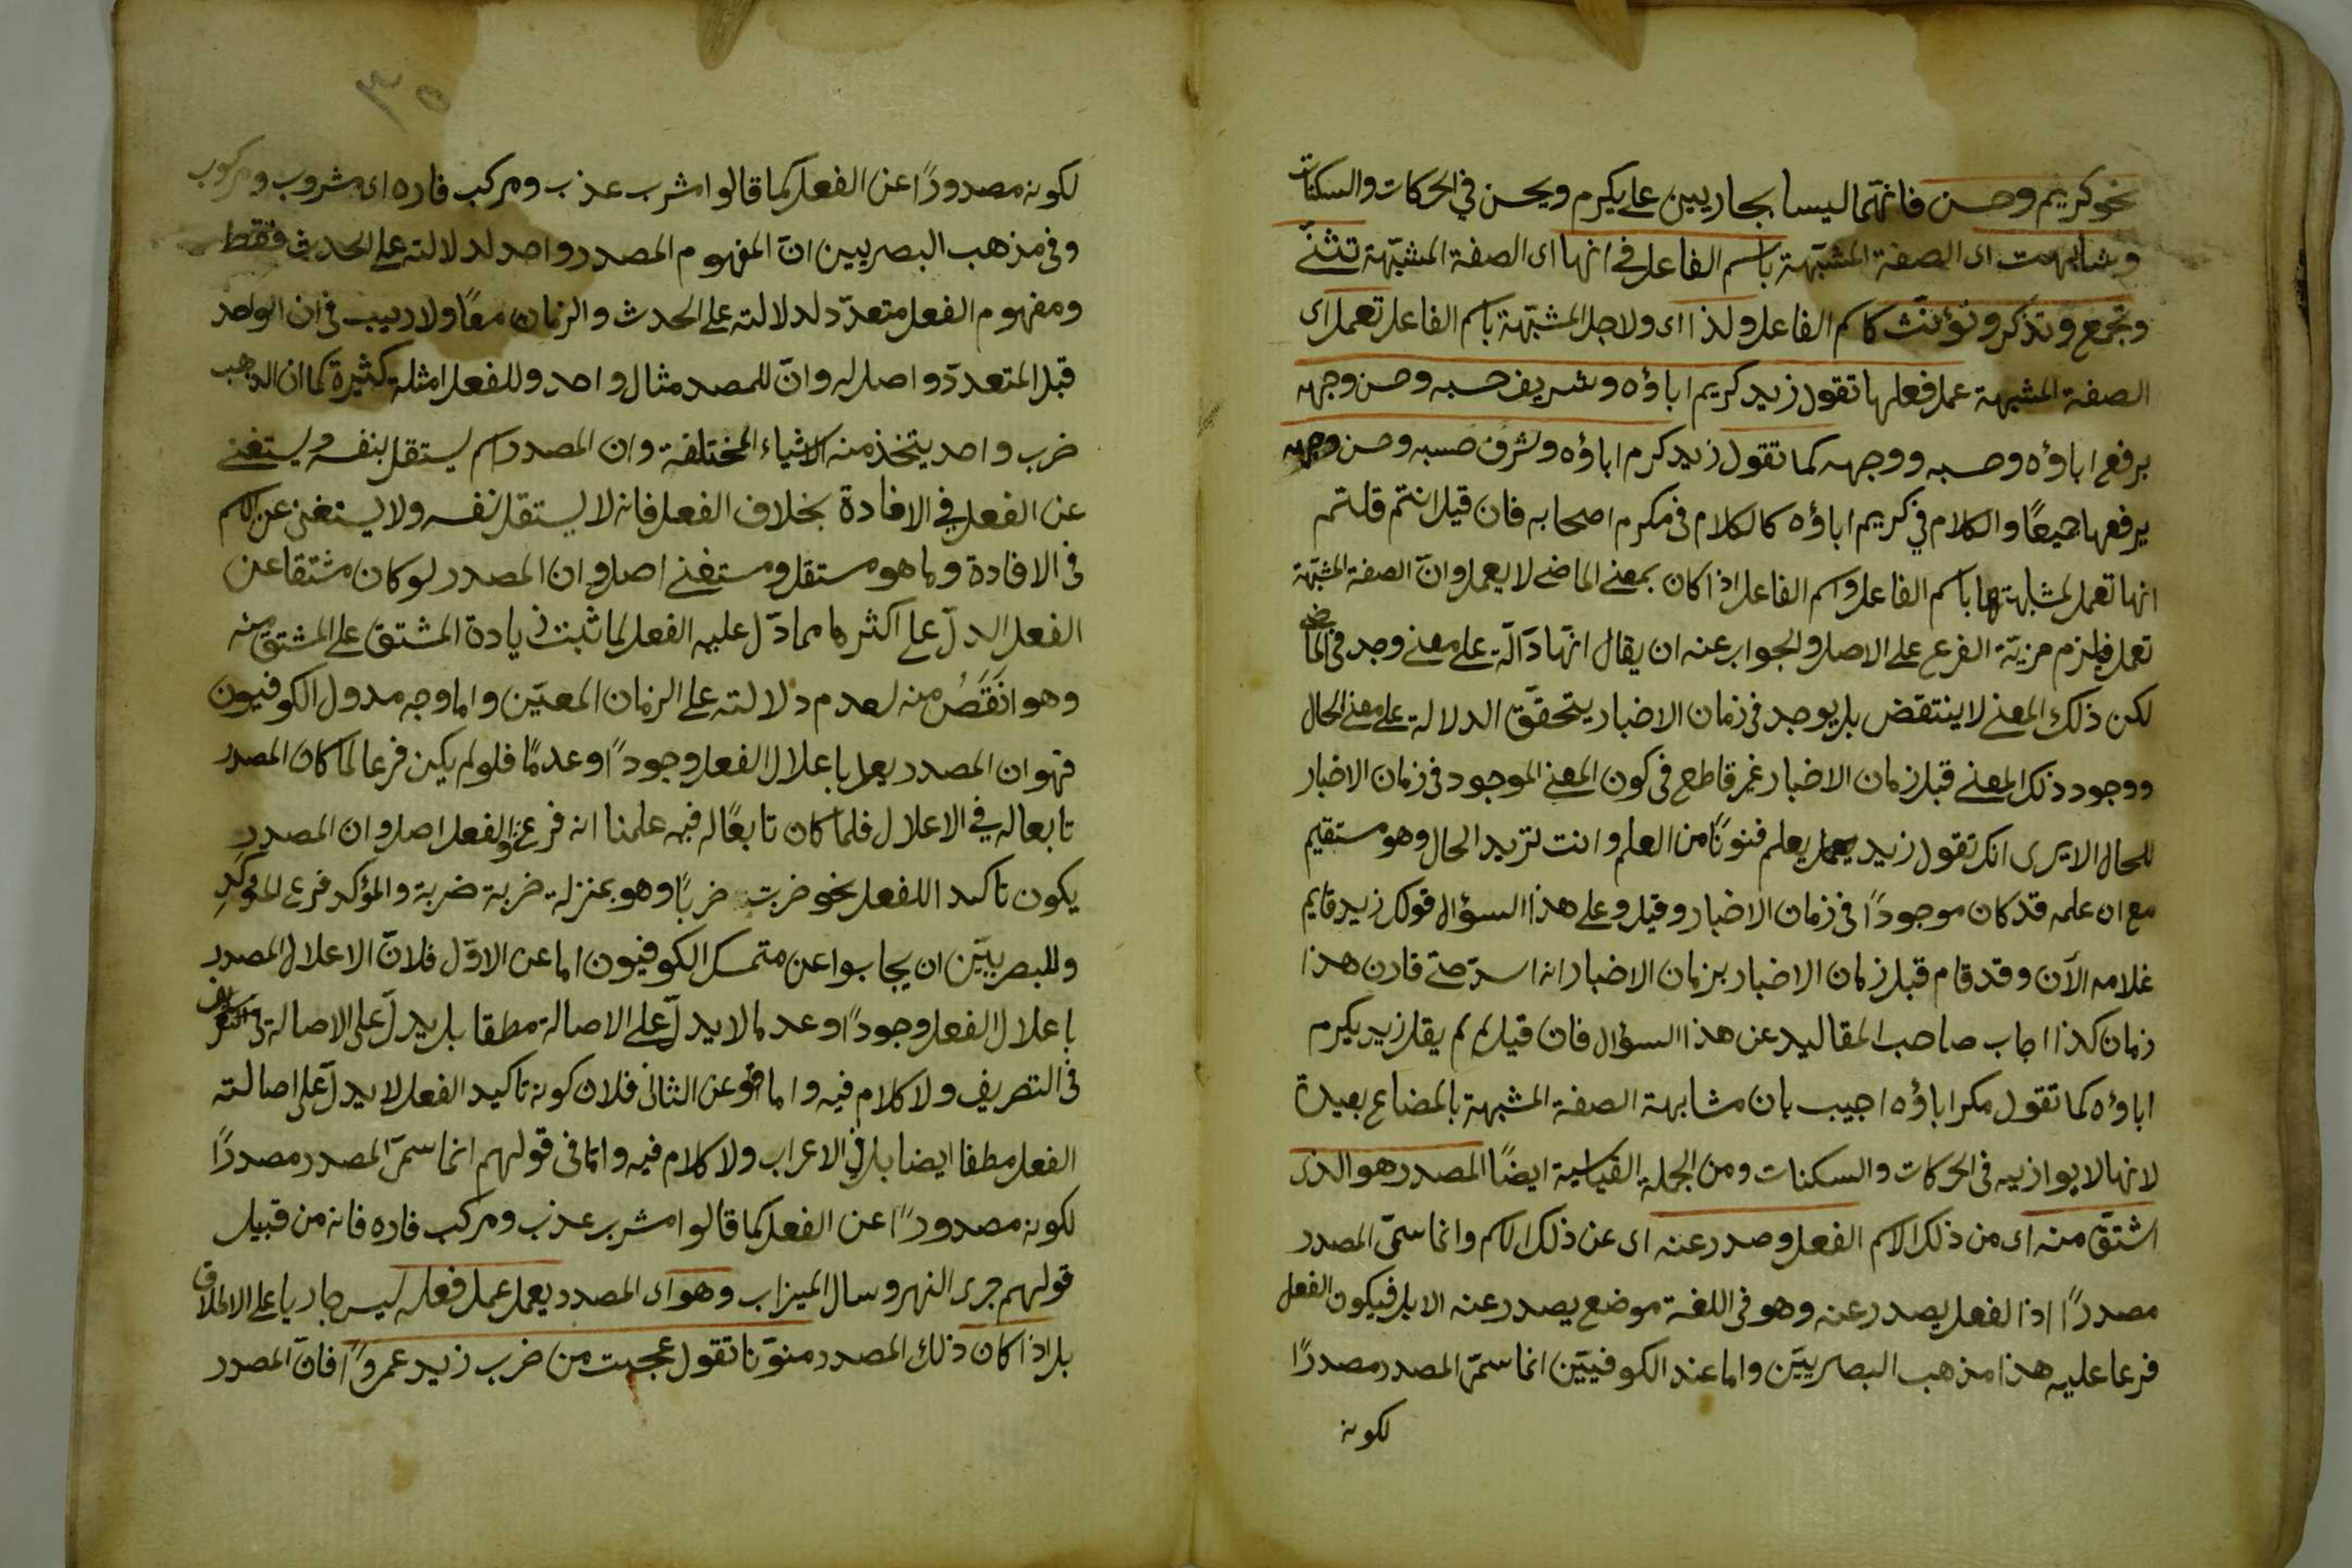 نحو كريم وحسن فانهما ليسا بجاريين على يكرم ويحسن في الحركات والسكنات
وشابهت اى الصفة المشبّهة باسم الفاعل في انها اى الصفة المشبّهة تثنّى
وتجمع وتذكر وتؤنّث كاسم الفاعل ولذا اى ولاجل المشبّهة باسم الفاعل تعمل اى
الصفة المشبهة عمل فعلها تقول زيد كريم اباؤه وشريف حسبه وحسن وجهه
برفع اباؤه وحسبه ووجهه كما تقول زيد كرم اباؤه وشرف حسبه وحسن وجهه
يرفعها جميعًا والكلام في كريم اباؤه كالكلام فى مكرم اصحابه فان قيل انتم قلتم
انها تعمل لمشابهتها باسم الفاعل واسم الفاعل اذا كان بمعنى الماضى لا يعمل وانّ الصفة المشبّهة
تعمل فيلزم مزيّة الفرع على الاصل والجواب عنه ان يقال انّها دآلّة على معنى وجد فى الماضى
لكن ذلك المعنى لا ينتقض بل يوجد فى زمان الاخبار يتحقّق الدلالة على معنى الحال
ووجود ذلك المعنى قبل زمان الاخبار غير قاطع فى كون المعنى الموجود فى زمان الاخبار
للحال الا يرى انك تقول زيد يعلم فنونًا من العلم وانت تريد الحال وهو مستقيم
مع ان علمه قد كان موجودًا فى زمان الاخبار وقيل وعلى هذا السؤال قولك زيد قايم
غلامه الآن وقد قام قبل زمان الاخبار بزمان الاخبار انه استر حتى قارن هذا
زمان كذا اجاب صاحب المقاليد عن هذا السؤال فان قيل لم لم يقل زيد يكرم
اباؤه كما تقول مكرم اباؤه اجيب بان مشابهة الصفة المشبهة بالمضاع بعيدة
لانها لا يوازيه فى الحركات والسكنات ومن الجملة القياسية ايضًا المصدر هو الذى
اشتقّ منه اى من ذلك الاسم الفعل وصدر عنه اى عن ذلك الاسم وانما سمّى المصدر
مصدرًا اذ الفعل يصدر عنه وهو فى اللغة موضع يصدر عنه الابل فيكون الفعل
فرعا عليه هذا مذهب البصريّين واما عند الكوفيّين انما سمّى المصدر مصدرًا
لكونه
٣٥
لكونه مصدورًا عن الفعل كما قالوا مشرب عذب ومركب فاره اى مشروب ومركوب
وفى مذهب البصريين انّ المفهوم المصدر واحد لدلالته على الحدث فقط
ومفهوم الفعل متعدّد لدلالته على الحدث والزمان معًا ولا ريب فى ان الواحد
قبل المتعدّد واصل له وانّ للمصد مثال واحد وللفعل امثلة كثيرة كما ان الذهب
ضرب واحد يتخذ منه الاشياء المختلفة وان المصدر اسم يستقل بنفسه ويستغنى
عن الفعل في الافادة بخلاف الفعل فانه لا يستقل نفسه ولا يستغنى عن الاسم
فى الافادة وما هو مستقل ومستغنى اصل وان المصدر لو كان مشتقا عن
الفعل الدلّ على اكثر ما ممادّل عليه الفعل لما ثبت زيادة المشتق على المشتق منه
وهو انقص منه لعدم دلالته على الزمان المعيّن واما وجه مدول الكوفيون
فهو ان المصدر يعل باعلال الفعل وجودًا وعدمًا فلو لم يكن فرعا لما كان المصدر
تابعا له في الاعلال فلما كان تابعًا له فيه علمنا انه فرع والفعل اصل وان المصدر
يكون تاكيد اللفعل نحو ضربت ضربًا وهو بمنزلة ضربة ضربة والمؤكد فرع للمؤكَّدِ
وللبصريّين ان يجابوا عن متمسك الكوفيون اما عن الاوّل فلانّ الاعلال المصدر
باعلال الفعل وجودًا وعدما لا يدلّ على الاصالة مطقا بل يدلّ على الاصالة
فى التصريف ولا كلام فيه واما عن الثانى فلان كونه تاكيد الفعل لا يدلّ على اصالته
الفعل مطقا ايضا بل فى الاعراب ولا كلام فيه وامّا فى قولهم انما سمّى المصدر مصدرًا
لكونه مصدورًا عن الفعل كما قالوا مشرب عذب ومركب فاره فانه من قبيل
قولهم جرى النهر وسال الميزاب وهو اى المصدر يعمل عمل فعله ليس جاريا على الاطلاق
بل اذا كان ذلك المصدر منوّنا تقول عجبت من ضرب زيد عمروًا فانّ المصدر